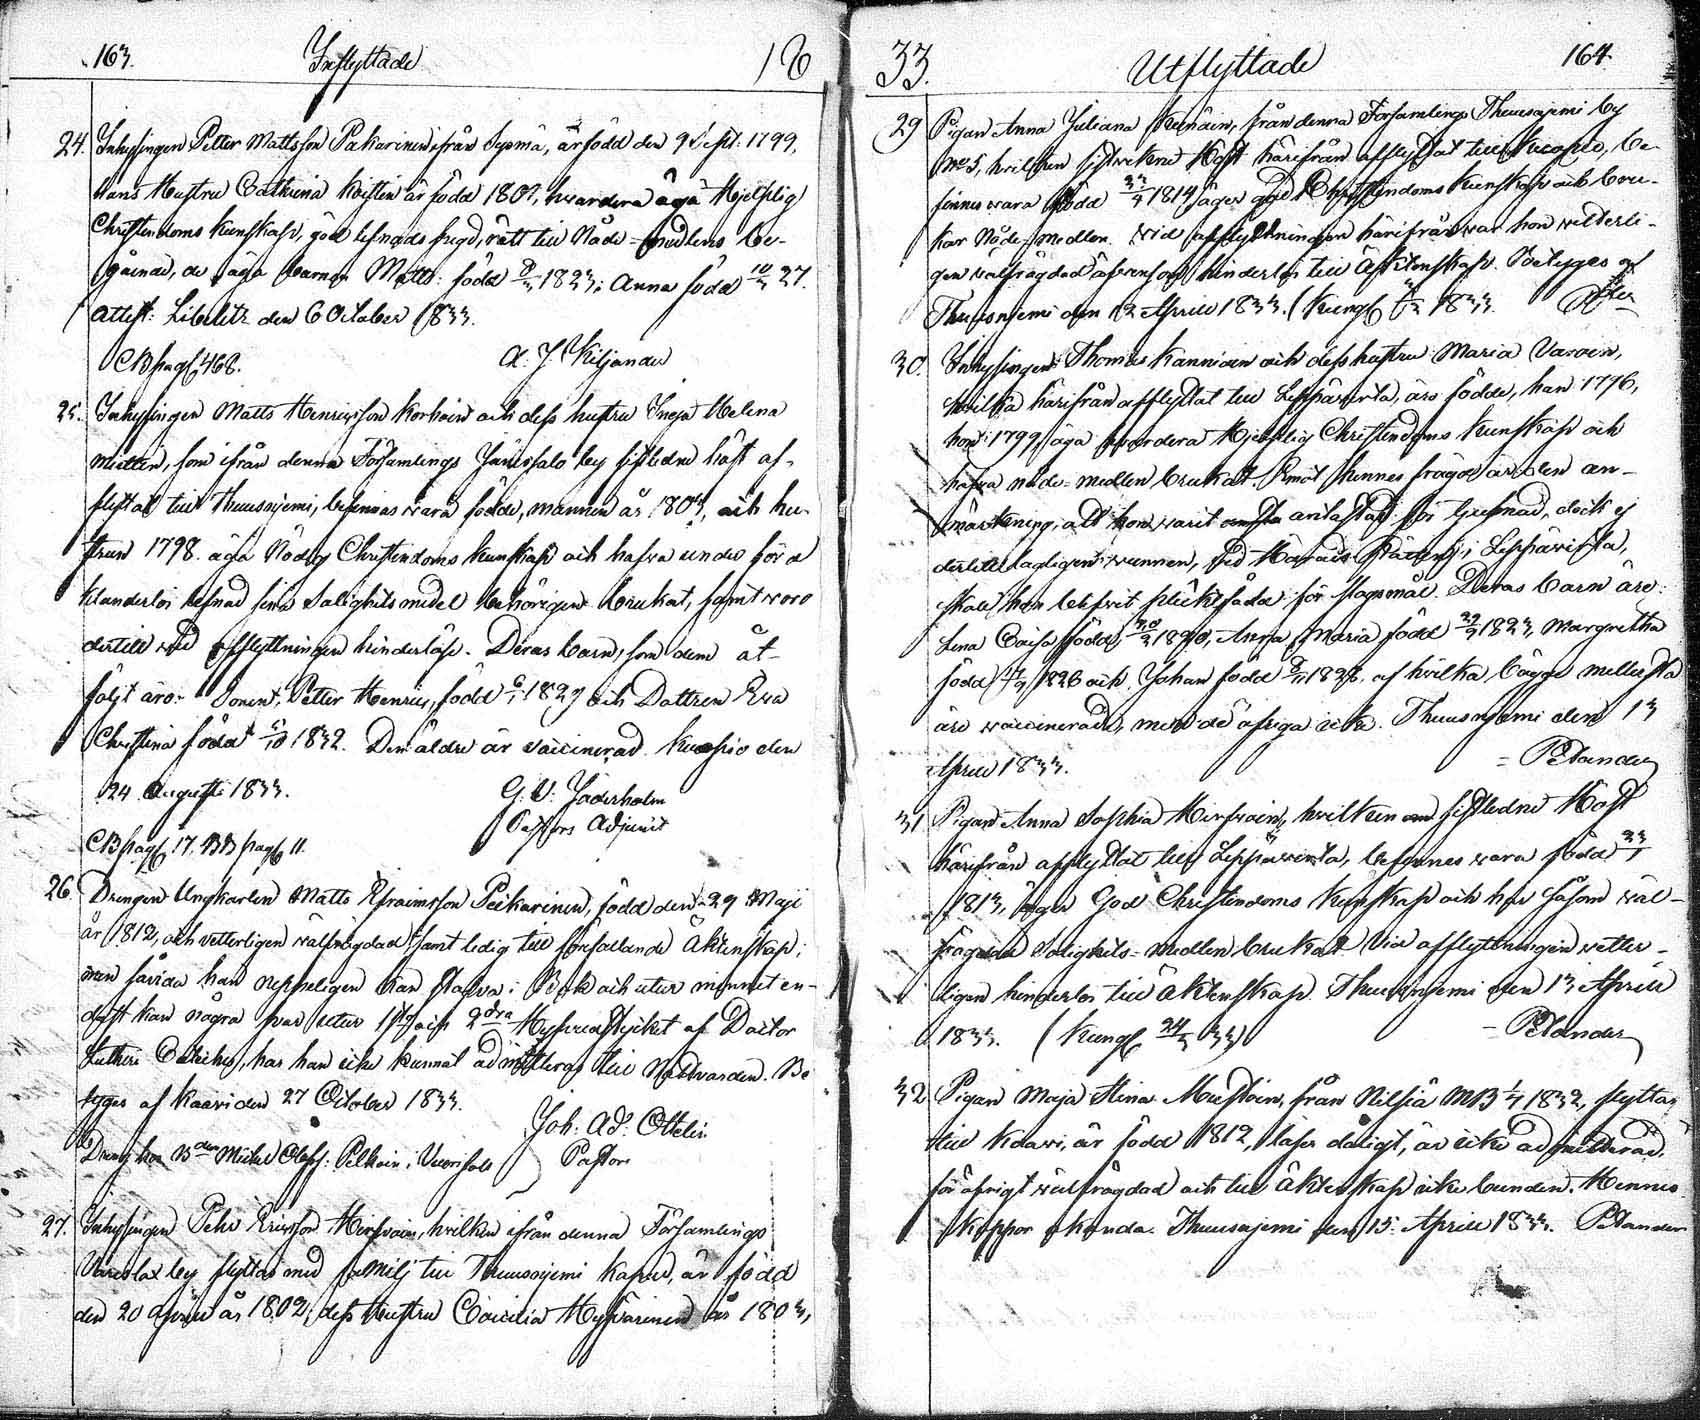 163. Inflyttade 18
24. Inhysingen Petter Mattsson Pakarinen ifrån Sysmä, är född den 9 Sept: 1799,
hans Hustru Cathrina är född 1802, hvardera äga Hjelplig
Christendoms kunskap, god lefnads frägd, rätt till Nåde-medlens be-
gående, de äga barnen Matts: född 1823; Anna född 27.
attest: Libelitz den 6 October 1833.
CB pag: 468. A. J. Kiljander
25. Inhysingen Matts Henricsson Korhoin och dess hustru Inga Helena
som ifrån denna Församlings by sistledne höst af-
flyttat till Thuusnjemi, befinnas wara födde, mannen år 1803, och hu-
strun 1798. äga Nödig Christendoms kunskap och hafva under förd
klanderlös lefnad sina Salighets medel behörigen brukat, samt woro
dertill wid afflyttningen hinderlöse. Deras barn, som dem åt-
följt äro: Sonen Petter Henric, född 1827 och Dottren Eva
Christina född 1832. Den äldre är vaccinerad. Kuopio den
24 Augusti 1833. G. W. Jäderholm
CB pag: 17. BB pag: 11. Pastors Adjunct
26. Drengen Ungkarlen Matts Efraimsson Peikarinen, född den 29 Maji
år 1812, och vetterligen välfrägdad samt ledig till förefallande Äktenskap;
men såvida han neppeligen kan stafva i Bok och utur minnet en-
dast kan några svar utur 1sta och 2dra Hufvudstycket af Doctor
Lutheri Cateches, har han icke kunnat admitteras till Nattvarden. Be-
tygas af Kaavi den 27 October 1833.
Joh: Ad: Ottelin
Dräng hos Bden Michel Olofs: Pelkoin i Vuorisalo Pastor
27. Inhysingen Pehr Ericsson Hirfvoin, hvilken ifrån denna Församlings
by flyttar med familj till Thuusnjemi Kapell, är född
den 20 April år 1802, dess Hustru Caicilia Hyfvärinen år 1803,
33. Utflyttade 164
29 Pigan Anna Juliana från denna Församlings Thuusnjemi by
No 5, hvilken sistvekne Höst härifrån afflyttat till Kuopio, be-
finnes wara född 1814, äger god Christendoms kunskap och bru-
kar Nåde-medlen. Wid afflyttningen härifrån war hon vitterli-
gen välfrägdad äfvensom hinderlös till Äktenskap. Betygas af
Thuusnjemi den 12 Aprill 1833.
30. Inhysingen Thomas Kanninen och dess hustru Maria Varoin,
hvilka härifrån afflyttat till Leppävirta, äro födde, han 1796,
hon 1799, äga hvardera Hjelplig Christendoms kunskap och
hafva nåde-medlen brukat. Emot hennes frägd är den an-
märkning, att hon varit antastad för tjufnad, dock ej
dertill lagligen wunnen, wid Härads Rätten i Leppävirta,
skall hon blifvit pliktfälld för slagsmål. Deras barn äro:
Lena Caisa född 1820, Anna Maria född 1823, Margretha
född 1826 och Johan född 1828, af hvilka bägge mellersta
äro vaccinerade, men de öfriga icke. Thuusnjemi den 13
Aprill 1833. Pelander
31 Pigan Anna Sophia Hirfvoin, hvilken sistledne Höst
härifrån afflyttat till Leppävirta, befinnes vara född
1813, äger God Christendoms kunskap och har såsom väl-
frägdad Salighets-medlen brukat. Vid afflyttningen vetter-
ligen hinderlös till Äktenskap. Thuusnjemi den 13 Aprill
1833. Pelander
32 Pigan Maja Stina Mustoin, från Nilsiä MB 1832, flyttar
till Kaavi, är född 1812, läser dåligt, är icke admitterad,
för öfrigt välfrägdad och till Äktenskap icke bunden. Hennes
koppor okända. Thuusnjemi den 15 Aprill 1833. Pelander